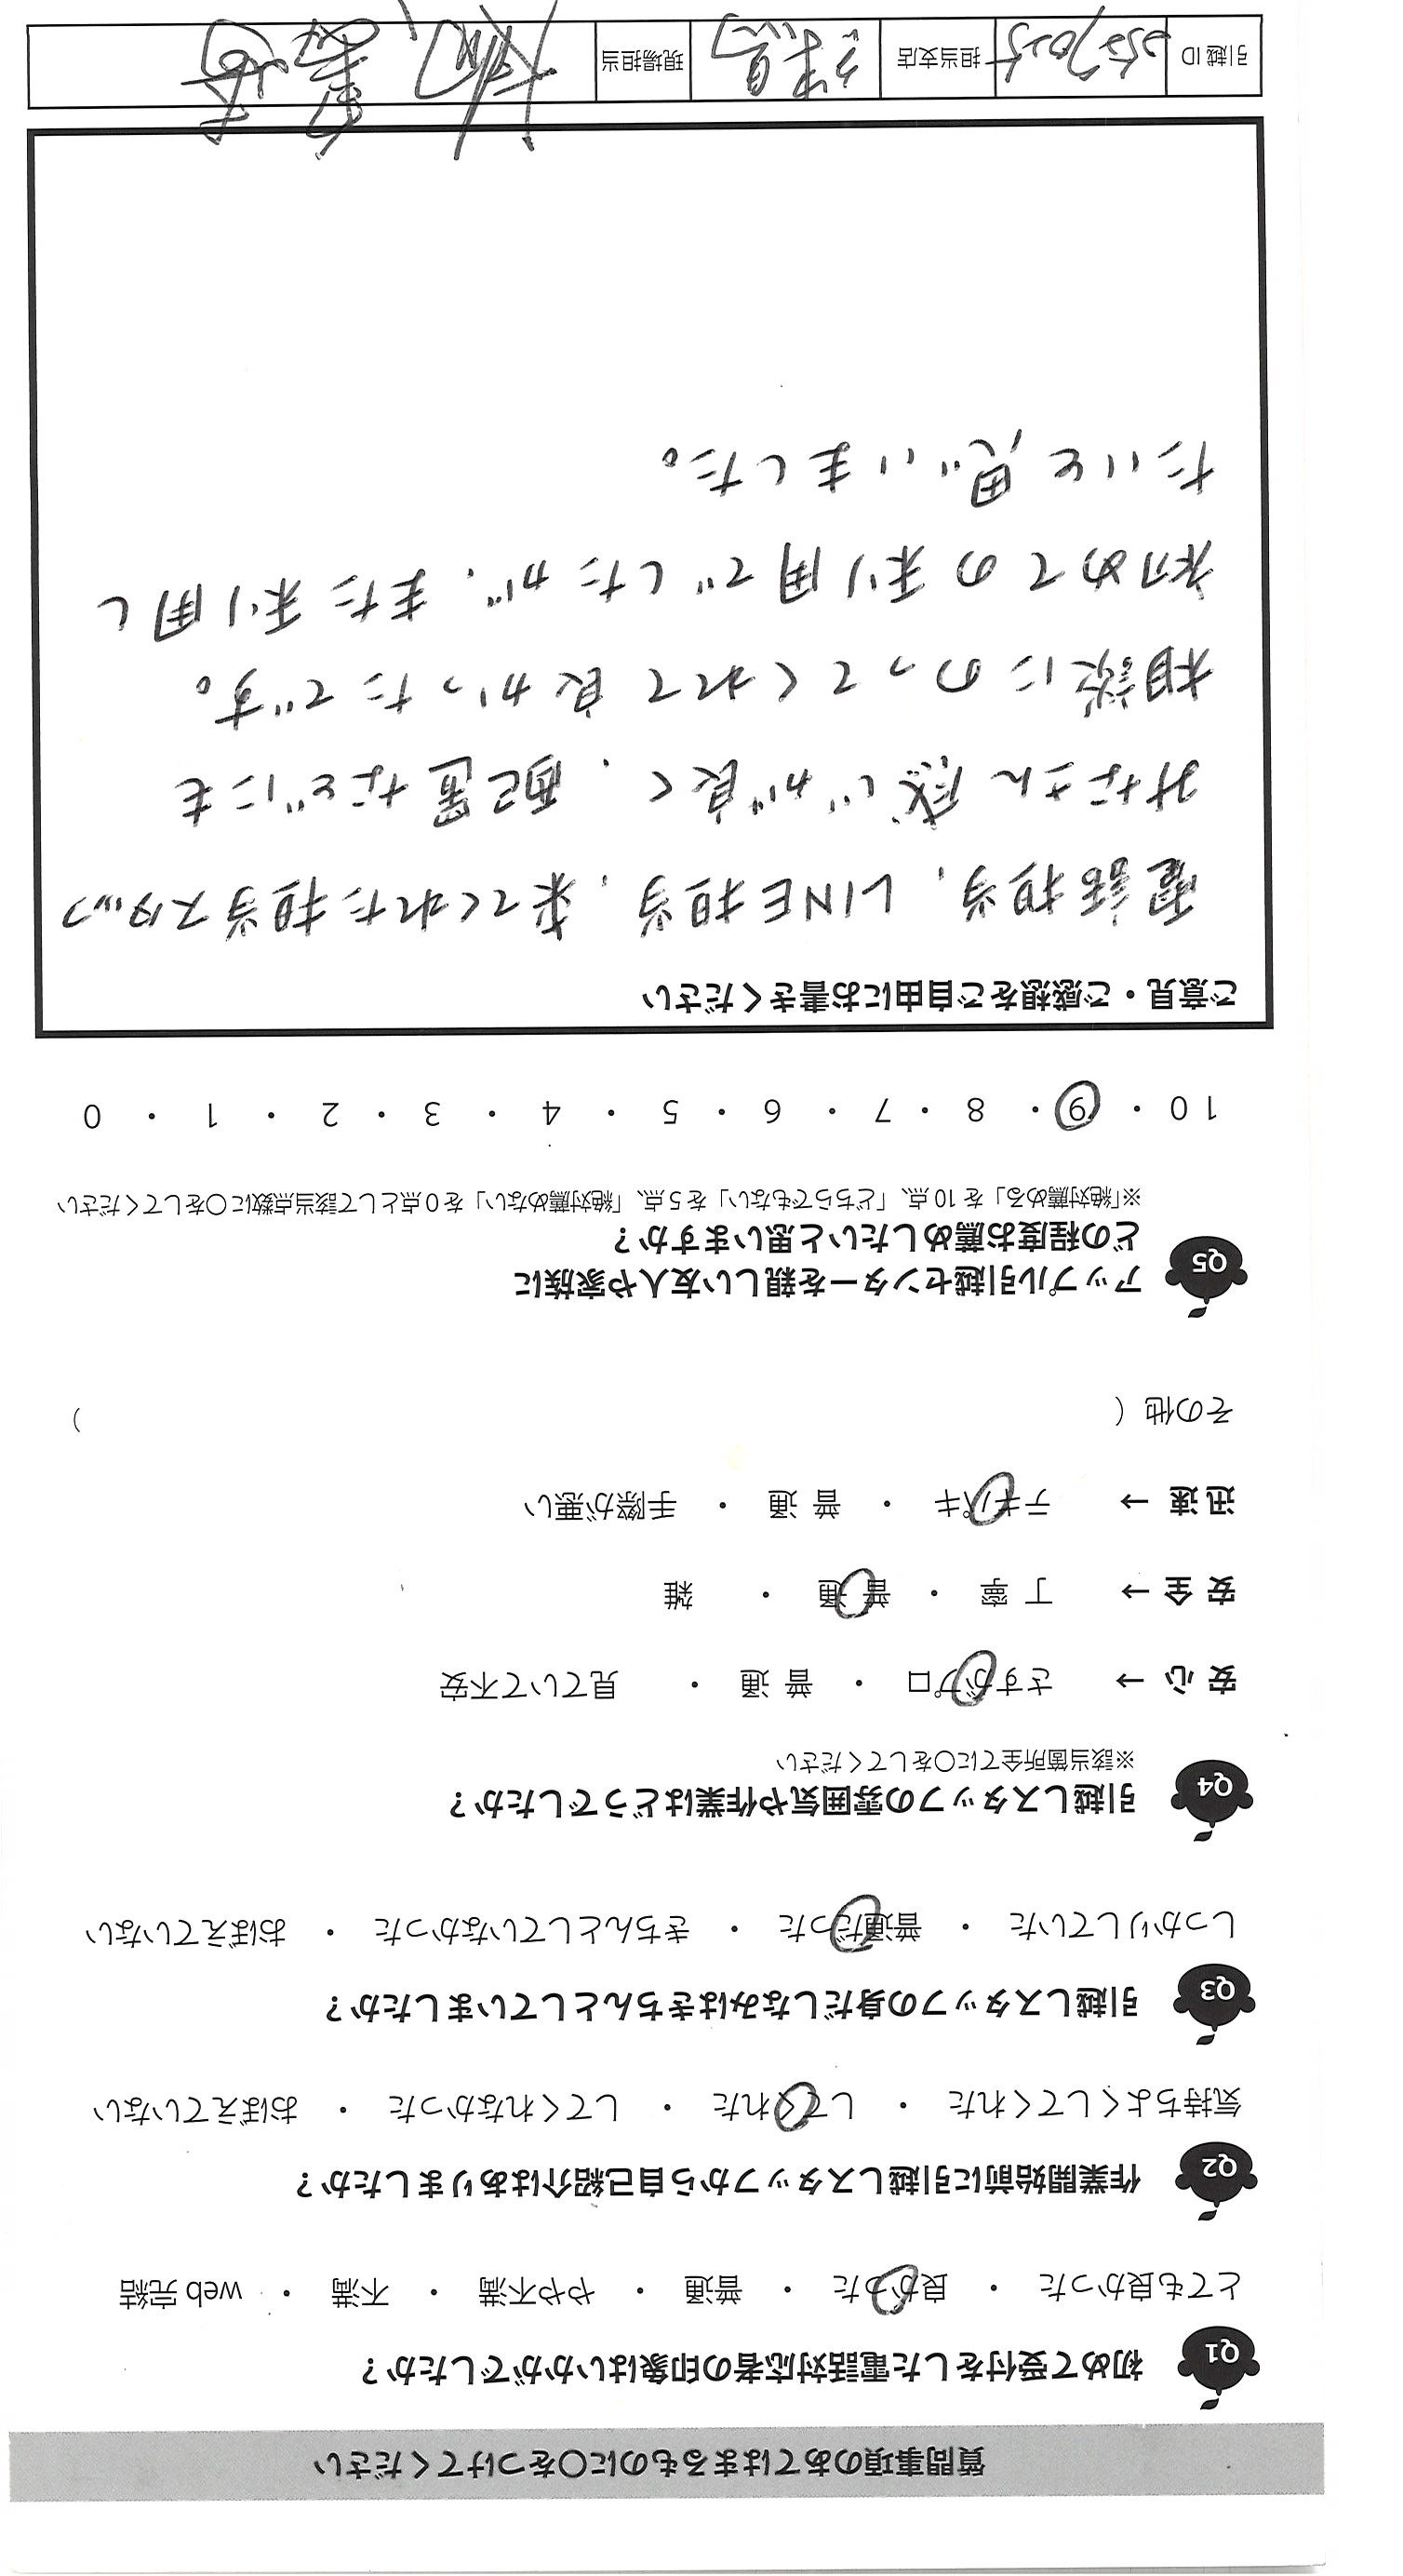 質問事項のあてはまるものに〇をつけてください
Q1 初めて受付をした電話対応者の印象はいかがでしたか？
とても良かった ・ 良かった ・ 普通 ・ やや不満 ・ 不満 ・ web 完結
Q2 作業開始前に引越しスタッフから自己紹介はありましたか？
気持ちよくしてくれた ・ してくれた ・ してくれなかった ・ おぼえていない
Q3 引越しスタッフの身だしなみはきちんとしていましたか？
しっかりしていた ・ 普通だった ・ きちんとしていなかった ・ おぼえていない
Q4 引越しスタッフの雰囲気や作業はどうでしたか？
※該当箇所全てに〇をしてください
安 心 → さすがプロ ・ 普 通 ・ 見ていて不安
安 全 → 丁 寧 ・ 普 通 ・ 雑
迅 速 → テキパキ ・ 普 通 ・ 手際が悪い
その他（ ）
Q5 アップル引越センターを親しい友人や家族に
どの程度お薦めしたいと思いますか？
※「絶対薦める」を 10 点、「どちらでもない」を 5 点、「絶対薦めない」を 0 点として該当点数に〇をしてください
10 ・ 9 ・ 8 ・ 7 ・ 6 ・ 5 ・ 4 ・ 3 ・ 2 ・ 1 ・ 0
ご意見・ご感想をご自由にお書きください
電話担当、LINE担当、来てくれた担当スタッフ
みなさん感じが良く、配置などにも
相談にのってくれて良かったです。
初めての利用でしたが、また利用し
たいと思いました。
引越 ID 担当支店 現場担当